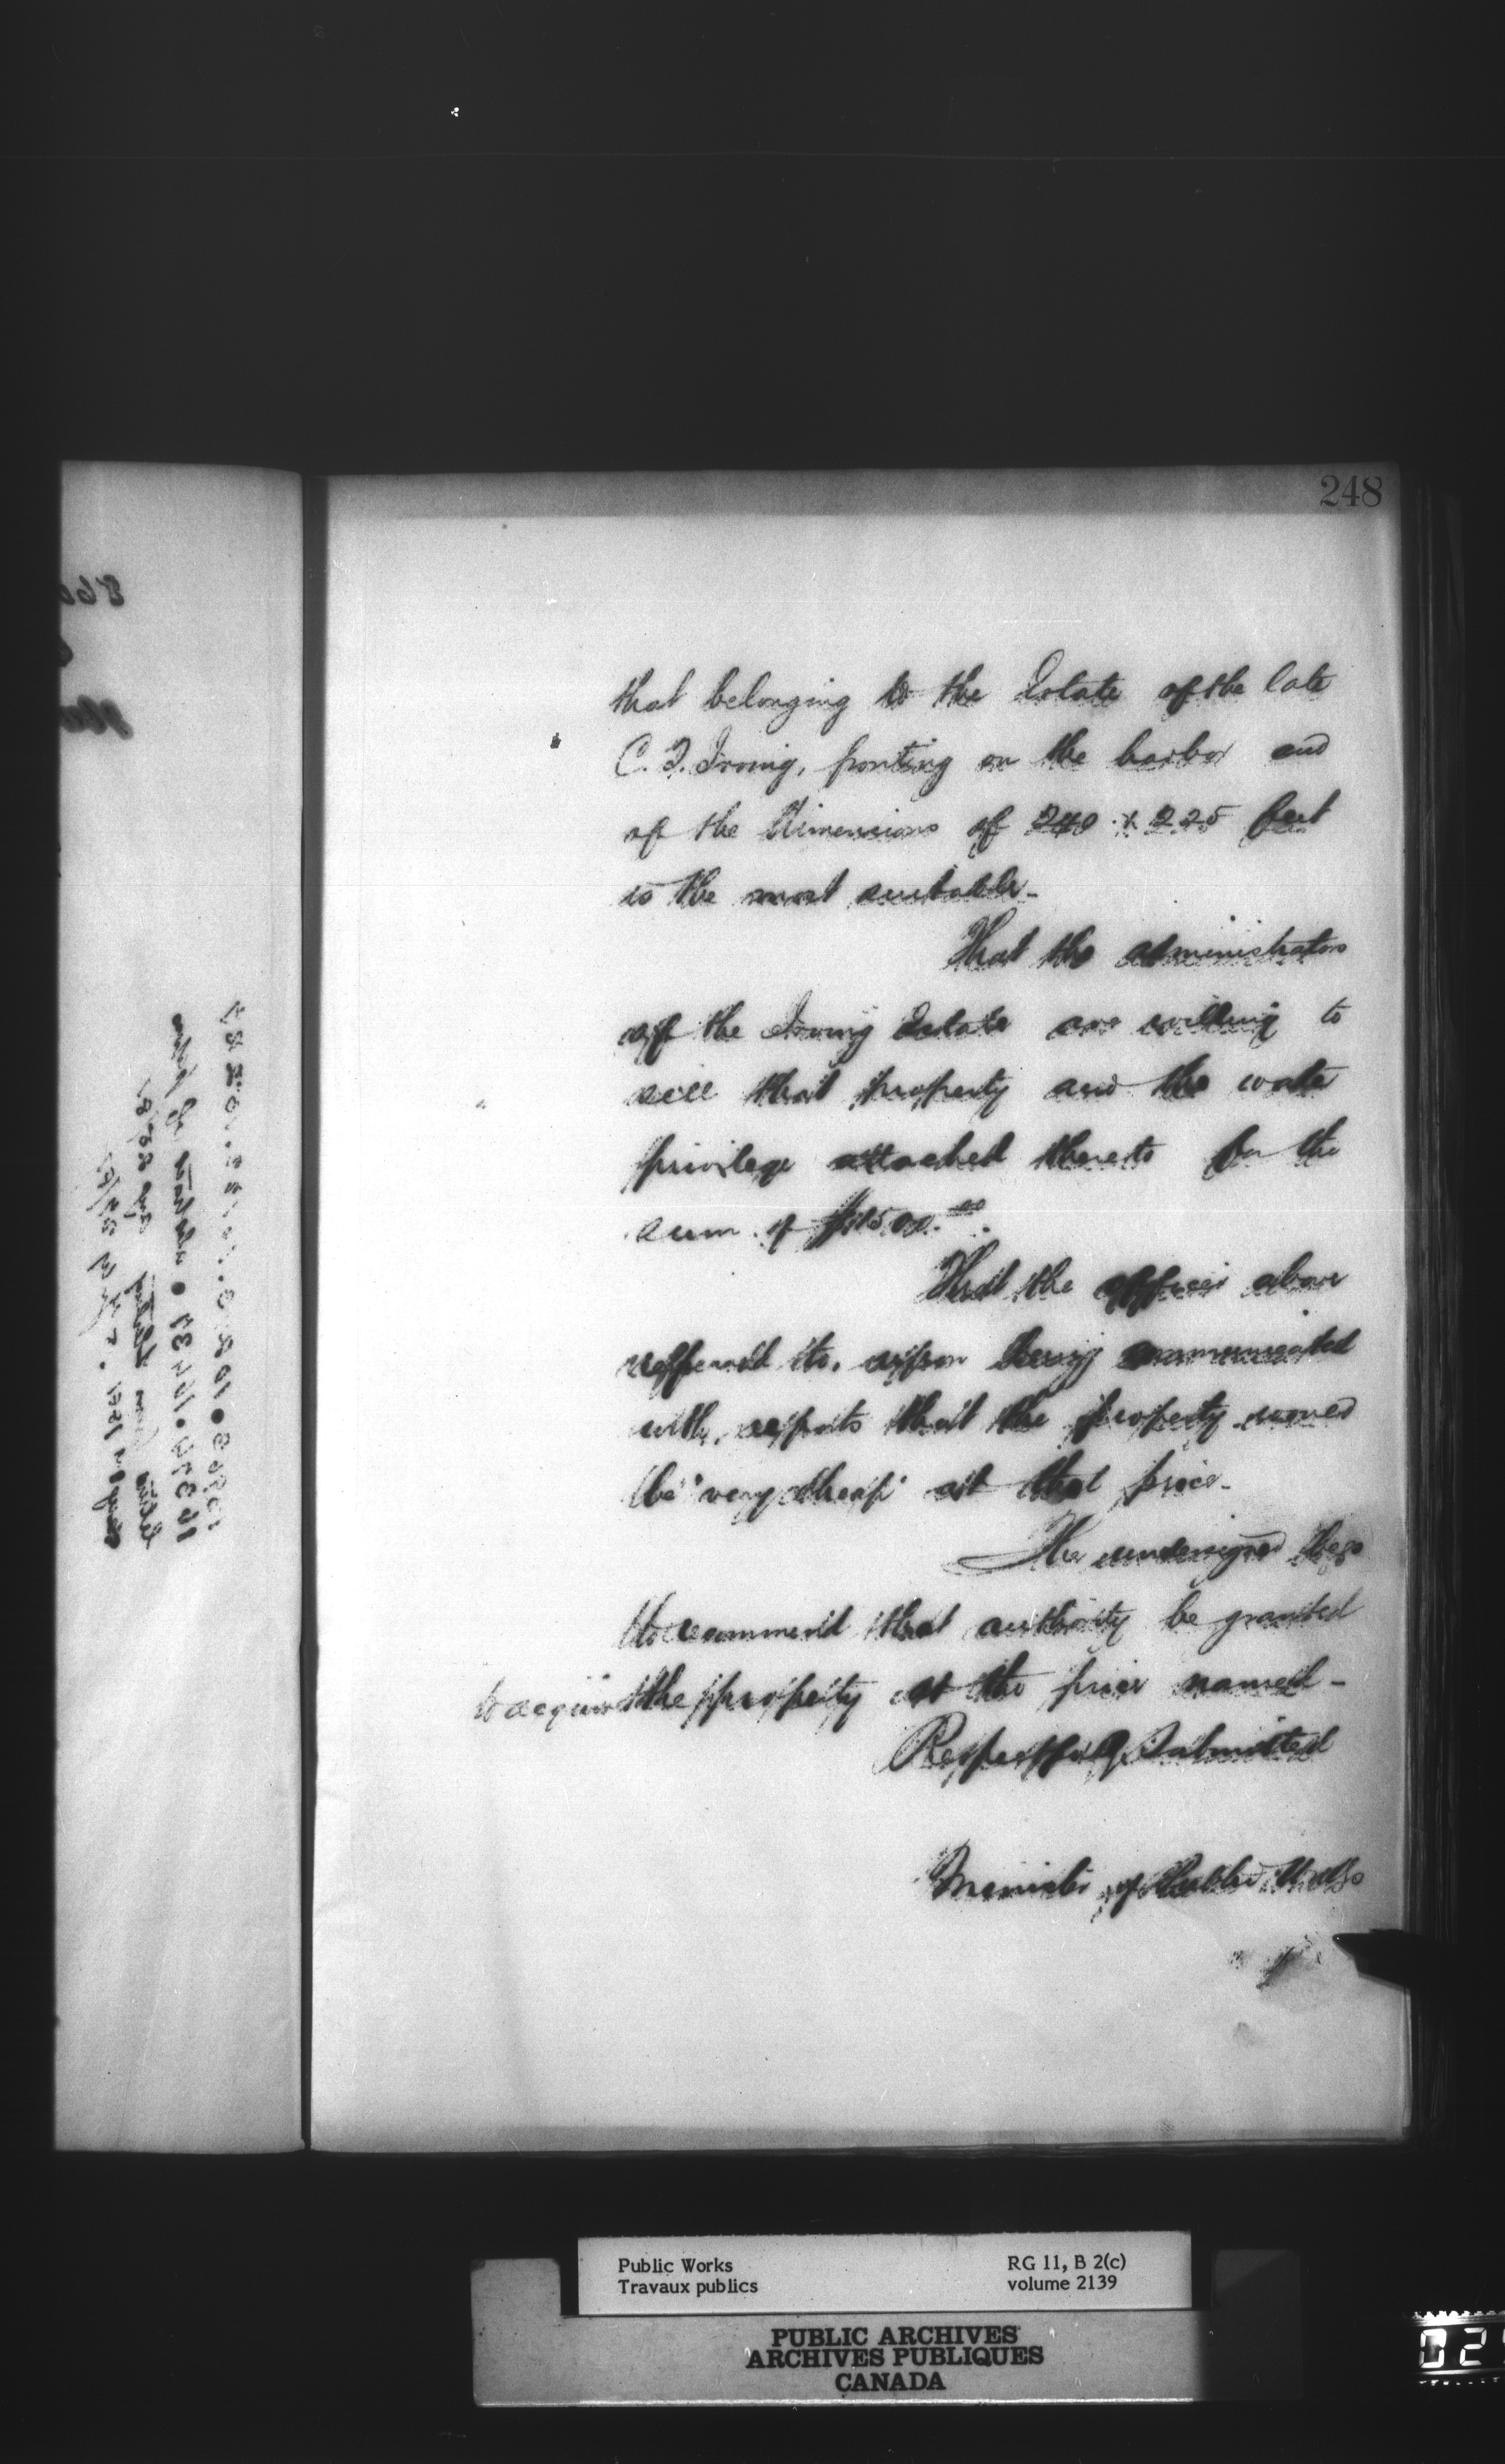 248
that belonging to the Estate of the late
C. F. Irving, fronting on the harbor and
of the dimensions of 240 x 225 feet
is the most suitable_
That the administrators
of the Irving Estate are willing to
sell that property and the water
privilege attached thereto for the
sum of $1500.00.
That the officer above
refferred to, upon being communicated
with, reports that the property would
be "very cheap" at that price_
The undersigned begs
to recommend that authority be granted
to acquire the property at the price named_
Respectfully Submitted
Minister of Public Works
Public Works
Travaux publics
RG 11, B 2(c)
volume 2139
PUBLIC ARCHIVES
ARCHIVES PUBLIQUES
CANADA
02